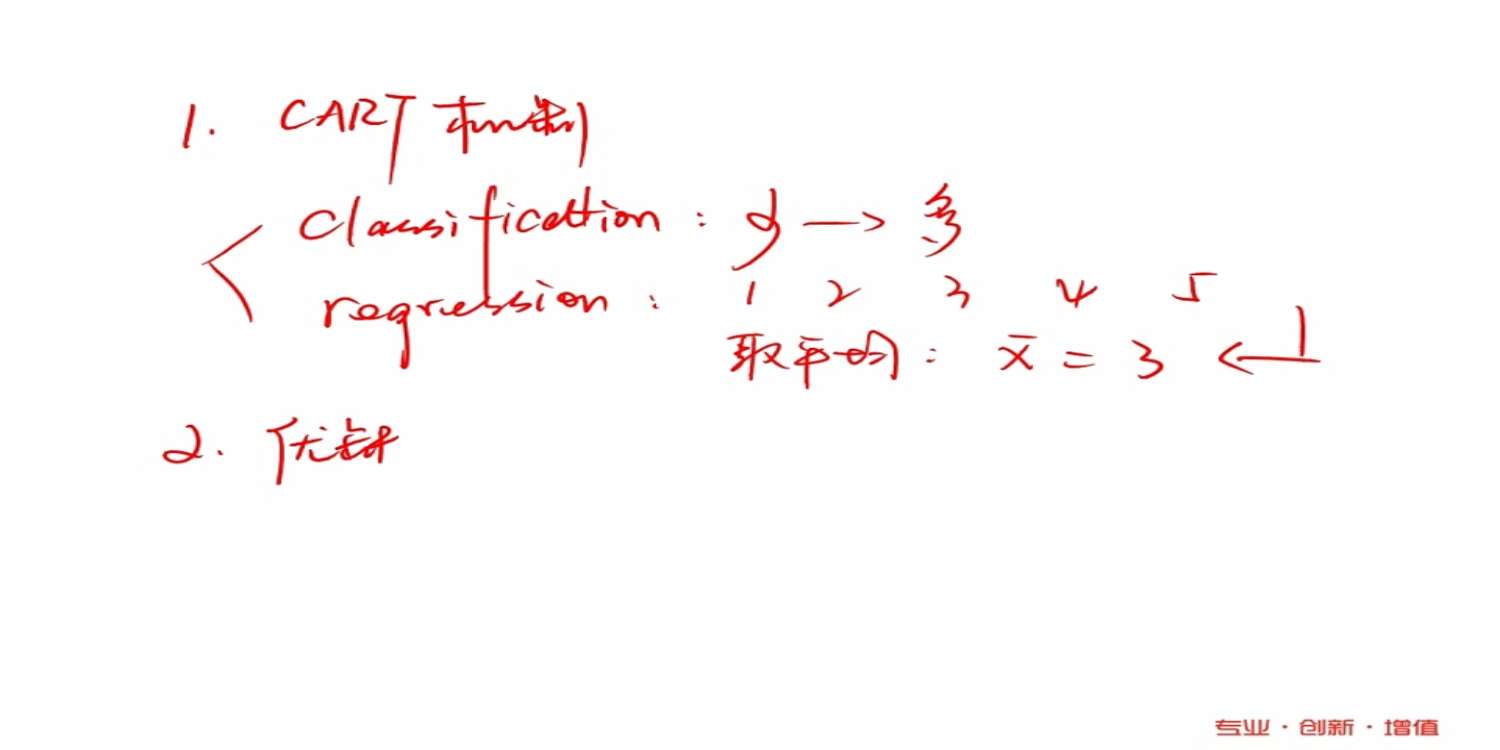 1. CART 机制
classification : 少 → 多
regression : 1 2 3 4 5
取平均 : x̄ = 3 ←
2. 优缺
专业·创新·增值